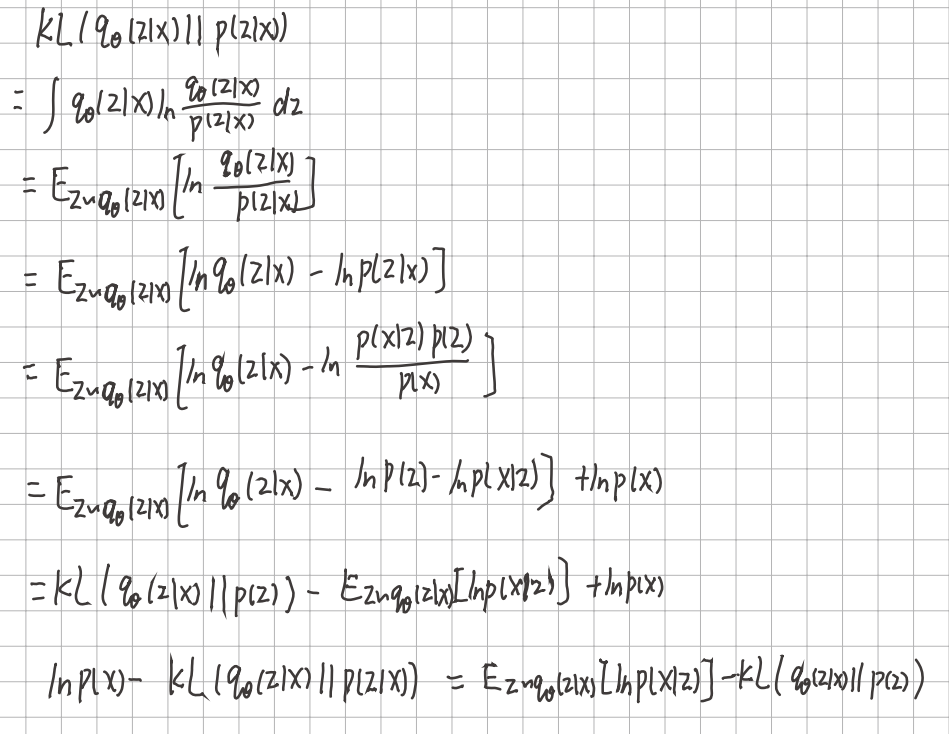 KL(q_θ(z|x) || p(z|x))
= ∫ q_θ(z|x) ln \frac{q_θ(z|x)}{p(z|x)} dz
= E_{z∼q_θ(z|x)} [ln \frac{q_θ(z|x)}{p(z|x)}]
= E_{z∼q_θ(z|x)} [ln q_θ(z|x) - ln p(z|x)]
= E_{z∼q_θ(z|x)} [ln q_θ(z|x) - ln \frac{p(x|z) p(z)}{p(x)}]
= E_{z∼q_θ(z|x)} [ln q_θ(z|x) - ln p(z) - ln p(x|z)] + ln p(x)
= KL(q_θ(z|x) || p(z)) - E_{z∼q_θ(z|x)} [ln p(x|z)] + ln p(x)
ln p(x) - KL(q_θ(z|x) || p(z|x)) = E_{z∼q_θ(z|x)} [ln p(x|z)] - KL(q_θ(z|x) || p(z))